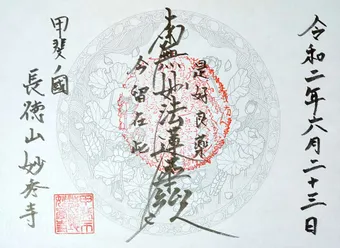 令和二年六月二十三日
是好良薬
南無妙法蓮華経
今留在此
甲斐ノ國
長徳山妙参寺